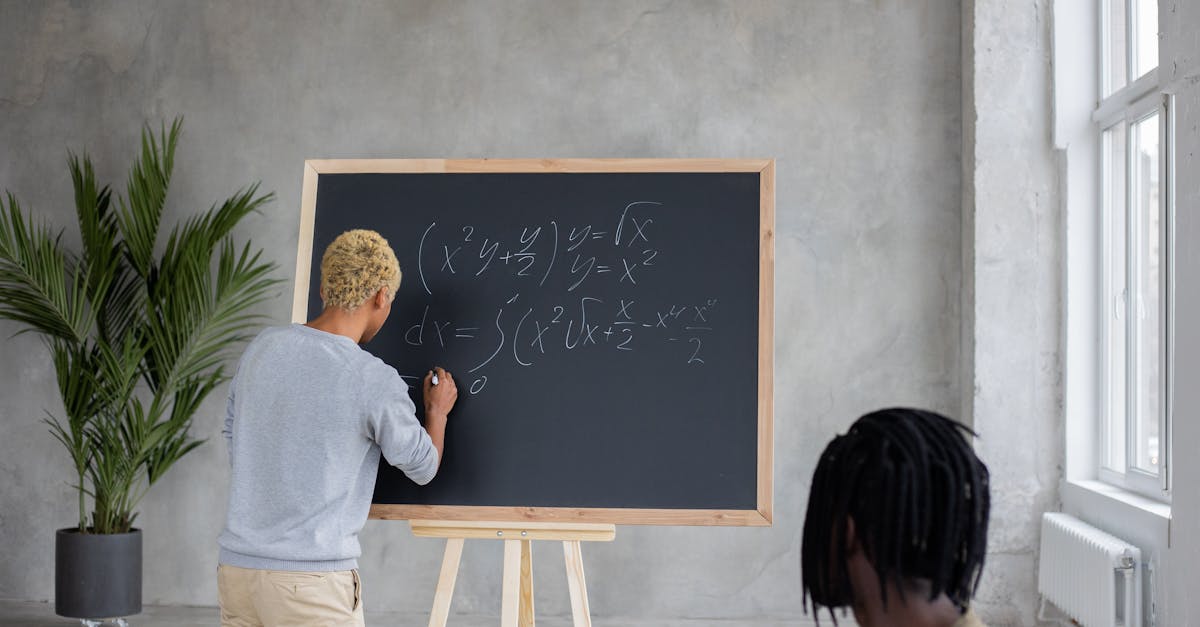 (x²y+y/2) y=√x
y=x²
dx=∫₀¹(x²√x+x/2-x⁴-x⁴/2
=